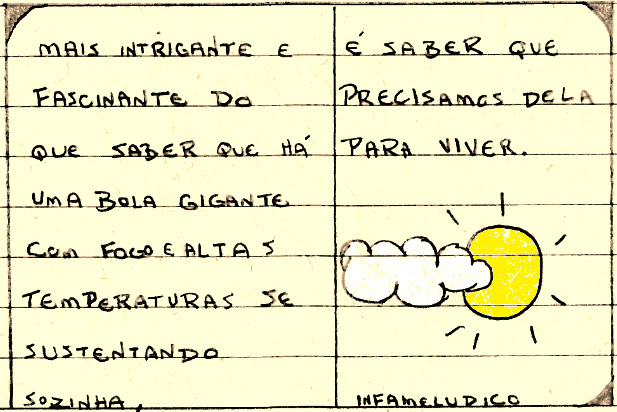 MAIS INTRIGANTE E
FASCINANTE DO
QUE SABER QUE HÁ
UMA BOLA GIGANTE
COM FOGO E ALTAS
TEMPERATURAS SE
SUSTENTANDO
SOZINHA,
É SABER QUE
PRECISAMOS DELA
PARA VIVER.
INFAMELUDICO